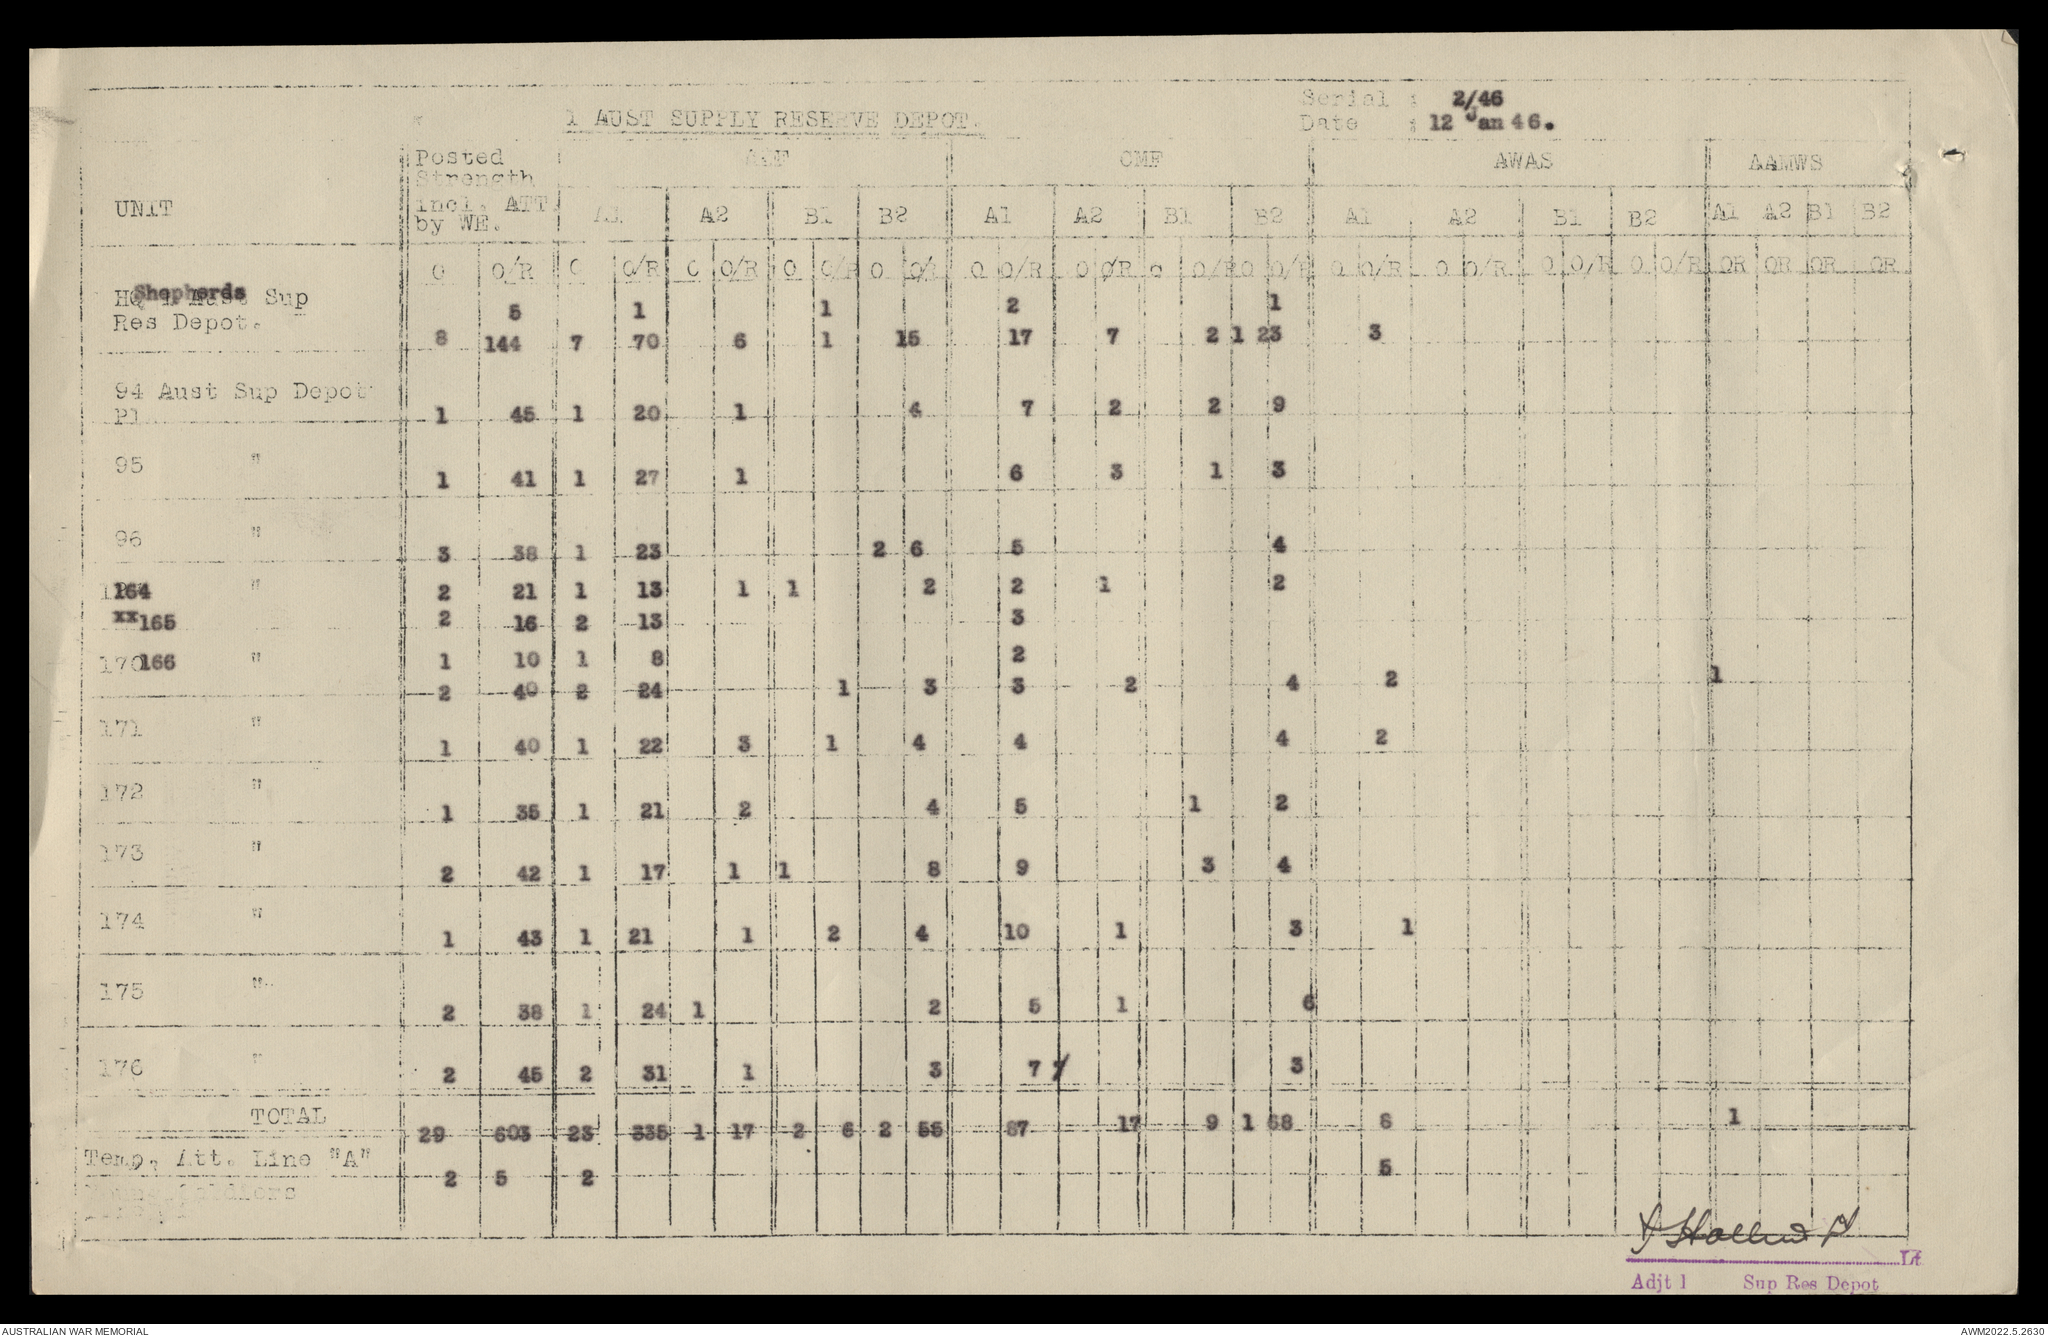 Serial : 2/46
1 AUST SUPPLY RESERVE DEPOT.
Date : 12 Jan 46.
UNIT Posted Strength incl. ATT by WE. AIF CMF AWAS AAMWS
A1 A2 B1 B2 A1 A2 B1 B2 A1 A2 B1 B2 A1 A2 B1 B2
O O/R O O/R O O/R O O/R O O/R O O/R O O/R O O/R O O/R O O/R O O/R O O/R O O/R OR OR OR OR
Shepherds 5 1 1 2 1
HQ 1 Aust Sup
Res Depot. 8 144 7 70 6 1 15 17 7 2 1 23 3
94 Aust Sup Depot
Pl 1 45 1 20 1 4 7 2 2 9
95 " 1 41 1 27 1 6 3 1 3
96 " 3 38 1 23 2 6 5 4
164 " 2 21 1 13 1 1 2 2 1 2
xx 165 2 16 2 13 3
166 " 1 10 1 8 2
170 2 40 2 24 1 3 3 2 4 2 1
171 " 1 40 1 22 3 1 4 4 4 2
172 " 1 35 1 21 2 4 5 1 2
173 " 2 42 1 17 1 1 8 9 3 4
174 " 1 43 1 21 1 2 4 10 1 3 1
175 " 2 38 1 24 1 2 5 1 6
176 " 2 45 2 31 1 3 7 3
TOTAL 29 603 23 335 1 17 2 6 2 55 87 17 9 1 68 8 1
Temp. Att. Line "A" 2 5 2 5
Lt
Adjt 1 Sup Res Depot
AUSTRALIAN WAR MEMORIAL
AWM2022.5.2630